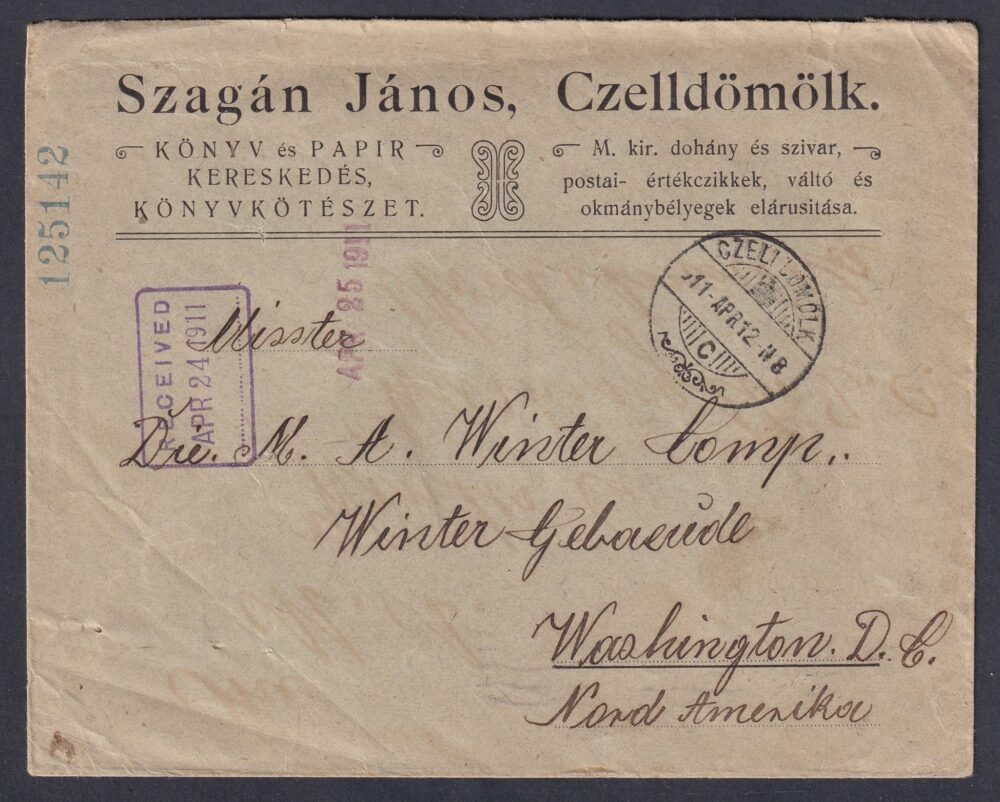 Szagán János, Czelldömölk.
KÖNYV és PAPIR
KERESKEDÉS,
KÖNYVKÖTÉSZET.
M. kir. dohány és szivar,
postai- értékczikkek, váltó és
okmánybélyegek elárusitása.
125142
APR 25 1911
RECEIVED
APR 24 1911
CZELLDÖMÖLK
911-APR 12-N 8
C
Misster
Die. M. A. Winter Comp..
Winter Gebaeude
Washington. D. C.
Nord Amerika